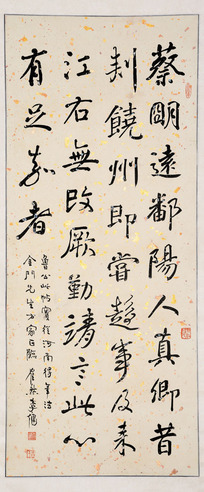 蔡明遠鄱陽人真卿昔
刺饒州即嘗趨事及来
江右無改厥勤靖言此心
有足嘉者
魯公此帖實從河南得筆法
金門先生方家正